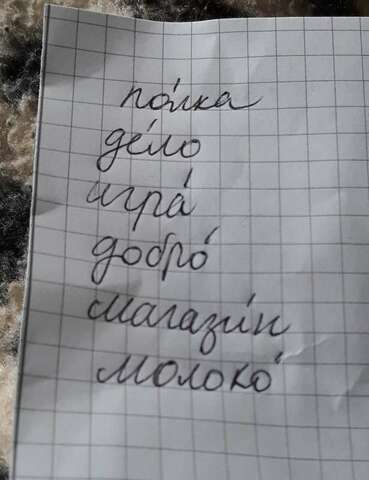 по́лка
де́ло
игра́
добро́
магази́н
молоко́